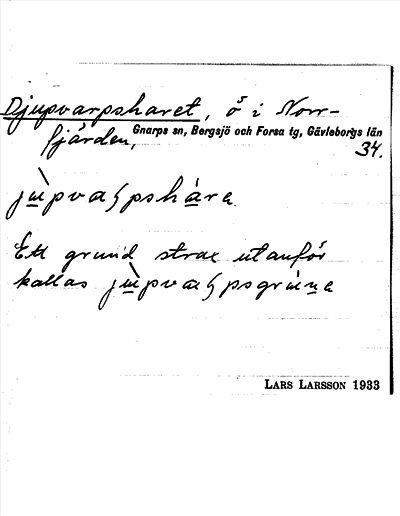 Djupvarpsharet, ö i Norr-
fjärden, Gnarps sn, Bergsjö och Forsa tg, Gävleborgs län
34.
Ett grund strax utanför
kallas
LARS LARSSON 1933